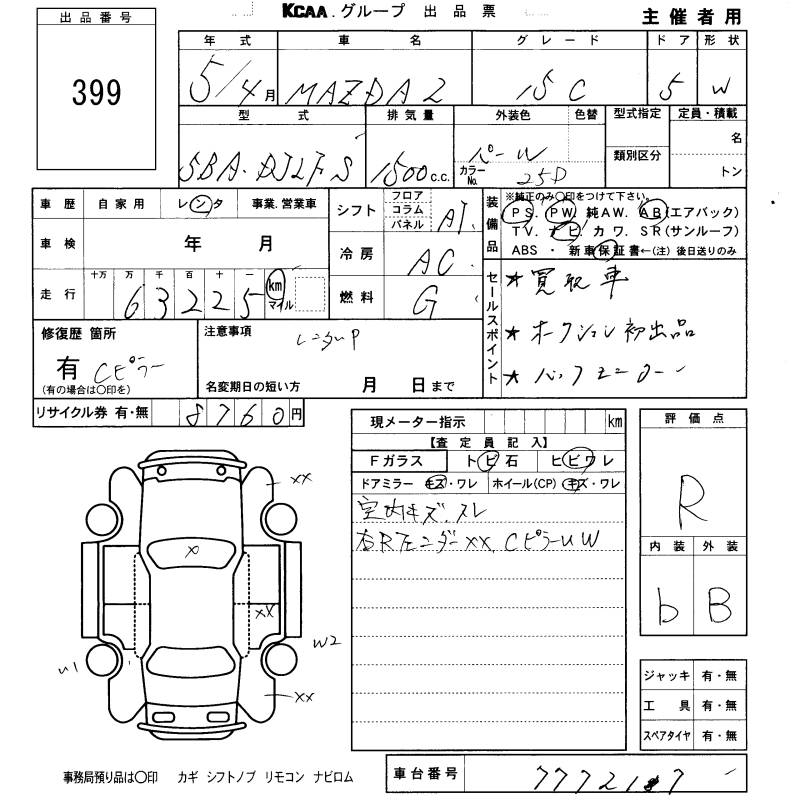 KCAA.グループ 出品票
主催者用
出品番号
399
年式 車名 グレード ドア 形状
5/4月 MAZDA2 15C 5 W
型式 排気量 外装色 色替 型式指定 定員・積載
名
類別区分
トン
5BA-DJLFS 1500c.c. パールW
カラーNo. 25D
車歴 自家用 レンタ 事業.営業車
車検 年 月
走行 十万 万 千 百 十 一
63225 km マイル
シフト フロア コラム パネル AT
冷房 AC
燃料 G
装備品
※純正のみ〇印をつけて下さい。
PS. PW. 純AW. AB(エアバック)
TV. ナビ. カワ. SR(サンルーフ)
ABS ・ 新車保証書←(注)後日送りのみ
セールスポイント
★ 買取車
★ オークション初出品
★ バックモニター
修復歴 箇所
有 Cピラー
(有の場合は〇印を)
注意事項
レンタUP
名変期日の短い方 月 日まで
リサイクル券 有・無 8760円
現メーター指示 km
【査定員記入】
Fガラス トビ石 ヒビワレ
ドアミラー キズ・ワレ ホイール(CP) キズ・ワレ
室内キズ.スレ
右Rフェンダーxx. CピラーUW
評価点
R
内装 外装
b B
xx
x
xx
W2
U1
xx
ジャッキ 有・無
工具 有・無
スペアタイヤ 有・無
事務局預り品は〇印 カギ シフトノブ リモコン ナビロム
車台番号